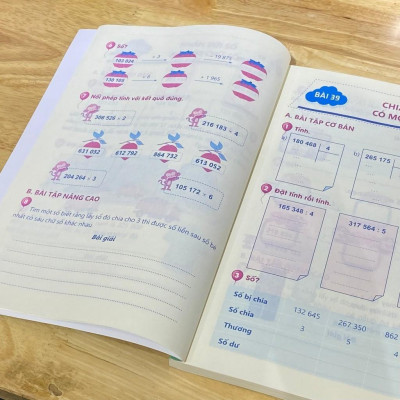 6 Số?
193 824
: 3
- 19 872
138 198
: 6
+ 1 963
7 Nối phép tính với kết quả đúng.
306 526 × 2
216 193 × 4
631 052
612 792
864 732
613 052
204 264 × 3
105 172 × 6
B. BÀI TẬP NÂNG CAO
8 Tìm một số biết rằng lấy số đó chia cho 3 thì được số liền sau số bé
nhất có sáu chữ số khác nhau.
Bài giải
BÀI 39
CHIA
CÓ MỘ
A. BÀI TẬP CƠ BẢN
1 Tính.
a)
180 468
4
b)
265 175
2 Đặt tính rồi tính.
165 348 : 4
317 564 : 5
3 Số?
Số bị chia
132 645
267 350
862
Số chia
3
5
4
Thương
Số dư